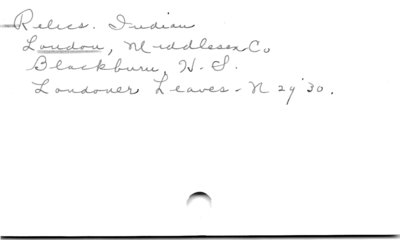 Relics. Indian
London, Middlesex Co
Blackburn, W. S.
Londoner Leaves - N 29 '30.